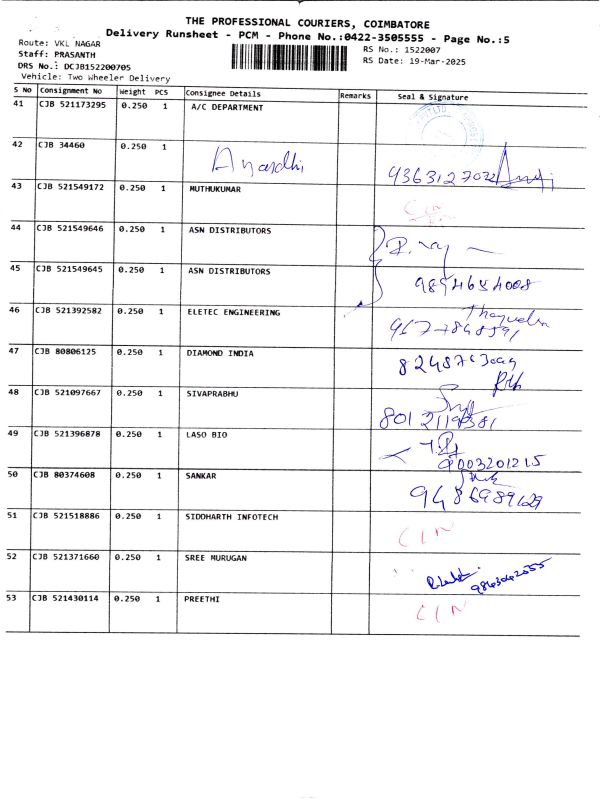 THE PROFESSIONAL COURIERS, COIMBATORE
Delivery Runsheet - PCM - Phone No.:0422-3505555 - Page No.:5
Route: VKL NAGAR
RS No.: 1522007
Staff: PRASANTH
RS Date: 19-Mar-2025
DRS No.: DCJB152200705
Vehicle: Two Wheeler Delivery
S No Consignment No Weight PCS Consignee Details Remarks Seal & Signature
41 CJB 521173295 0.250 1 A/C DEPARTMENT
42 CJB 34460 0.250 1 Anandhi 9363127022
43 CJB 521549172 0.250 1 MUTHUKUMAR
44 CJB 521549646 0.250 1 ASN DISTRIBUTORS
45 CJB 521549645 0.250 1 ASN DISTRIBUTORS
46 CJB 521392582 0.250 1 ELETEC ENGINEERING
47 CJB 80806125 0.250 1 DIAMOND INDIA
48 CJB 521097667 0.250 1 SIVAPRABHU
49 CJB 521396878 0.250 1 LASO BIO 9003201215
50 CJB 80374608 0.250 1 SANKAR
51 CJB 521518886 0.250 1 SIDDHARTH INFOTECH CIN
52 CJB 521371660 0.250 1 SREE MURUGAN
53 CJB 521430114 0.250 1 PREETHI CIN